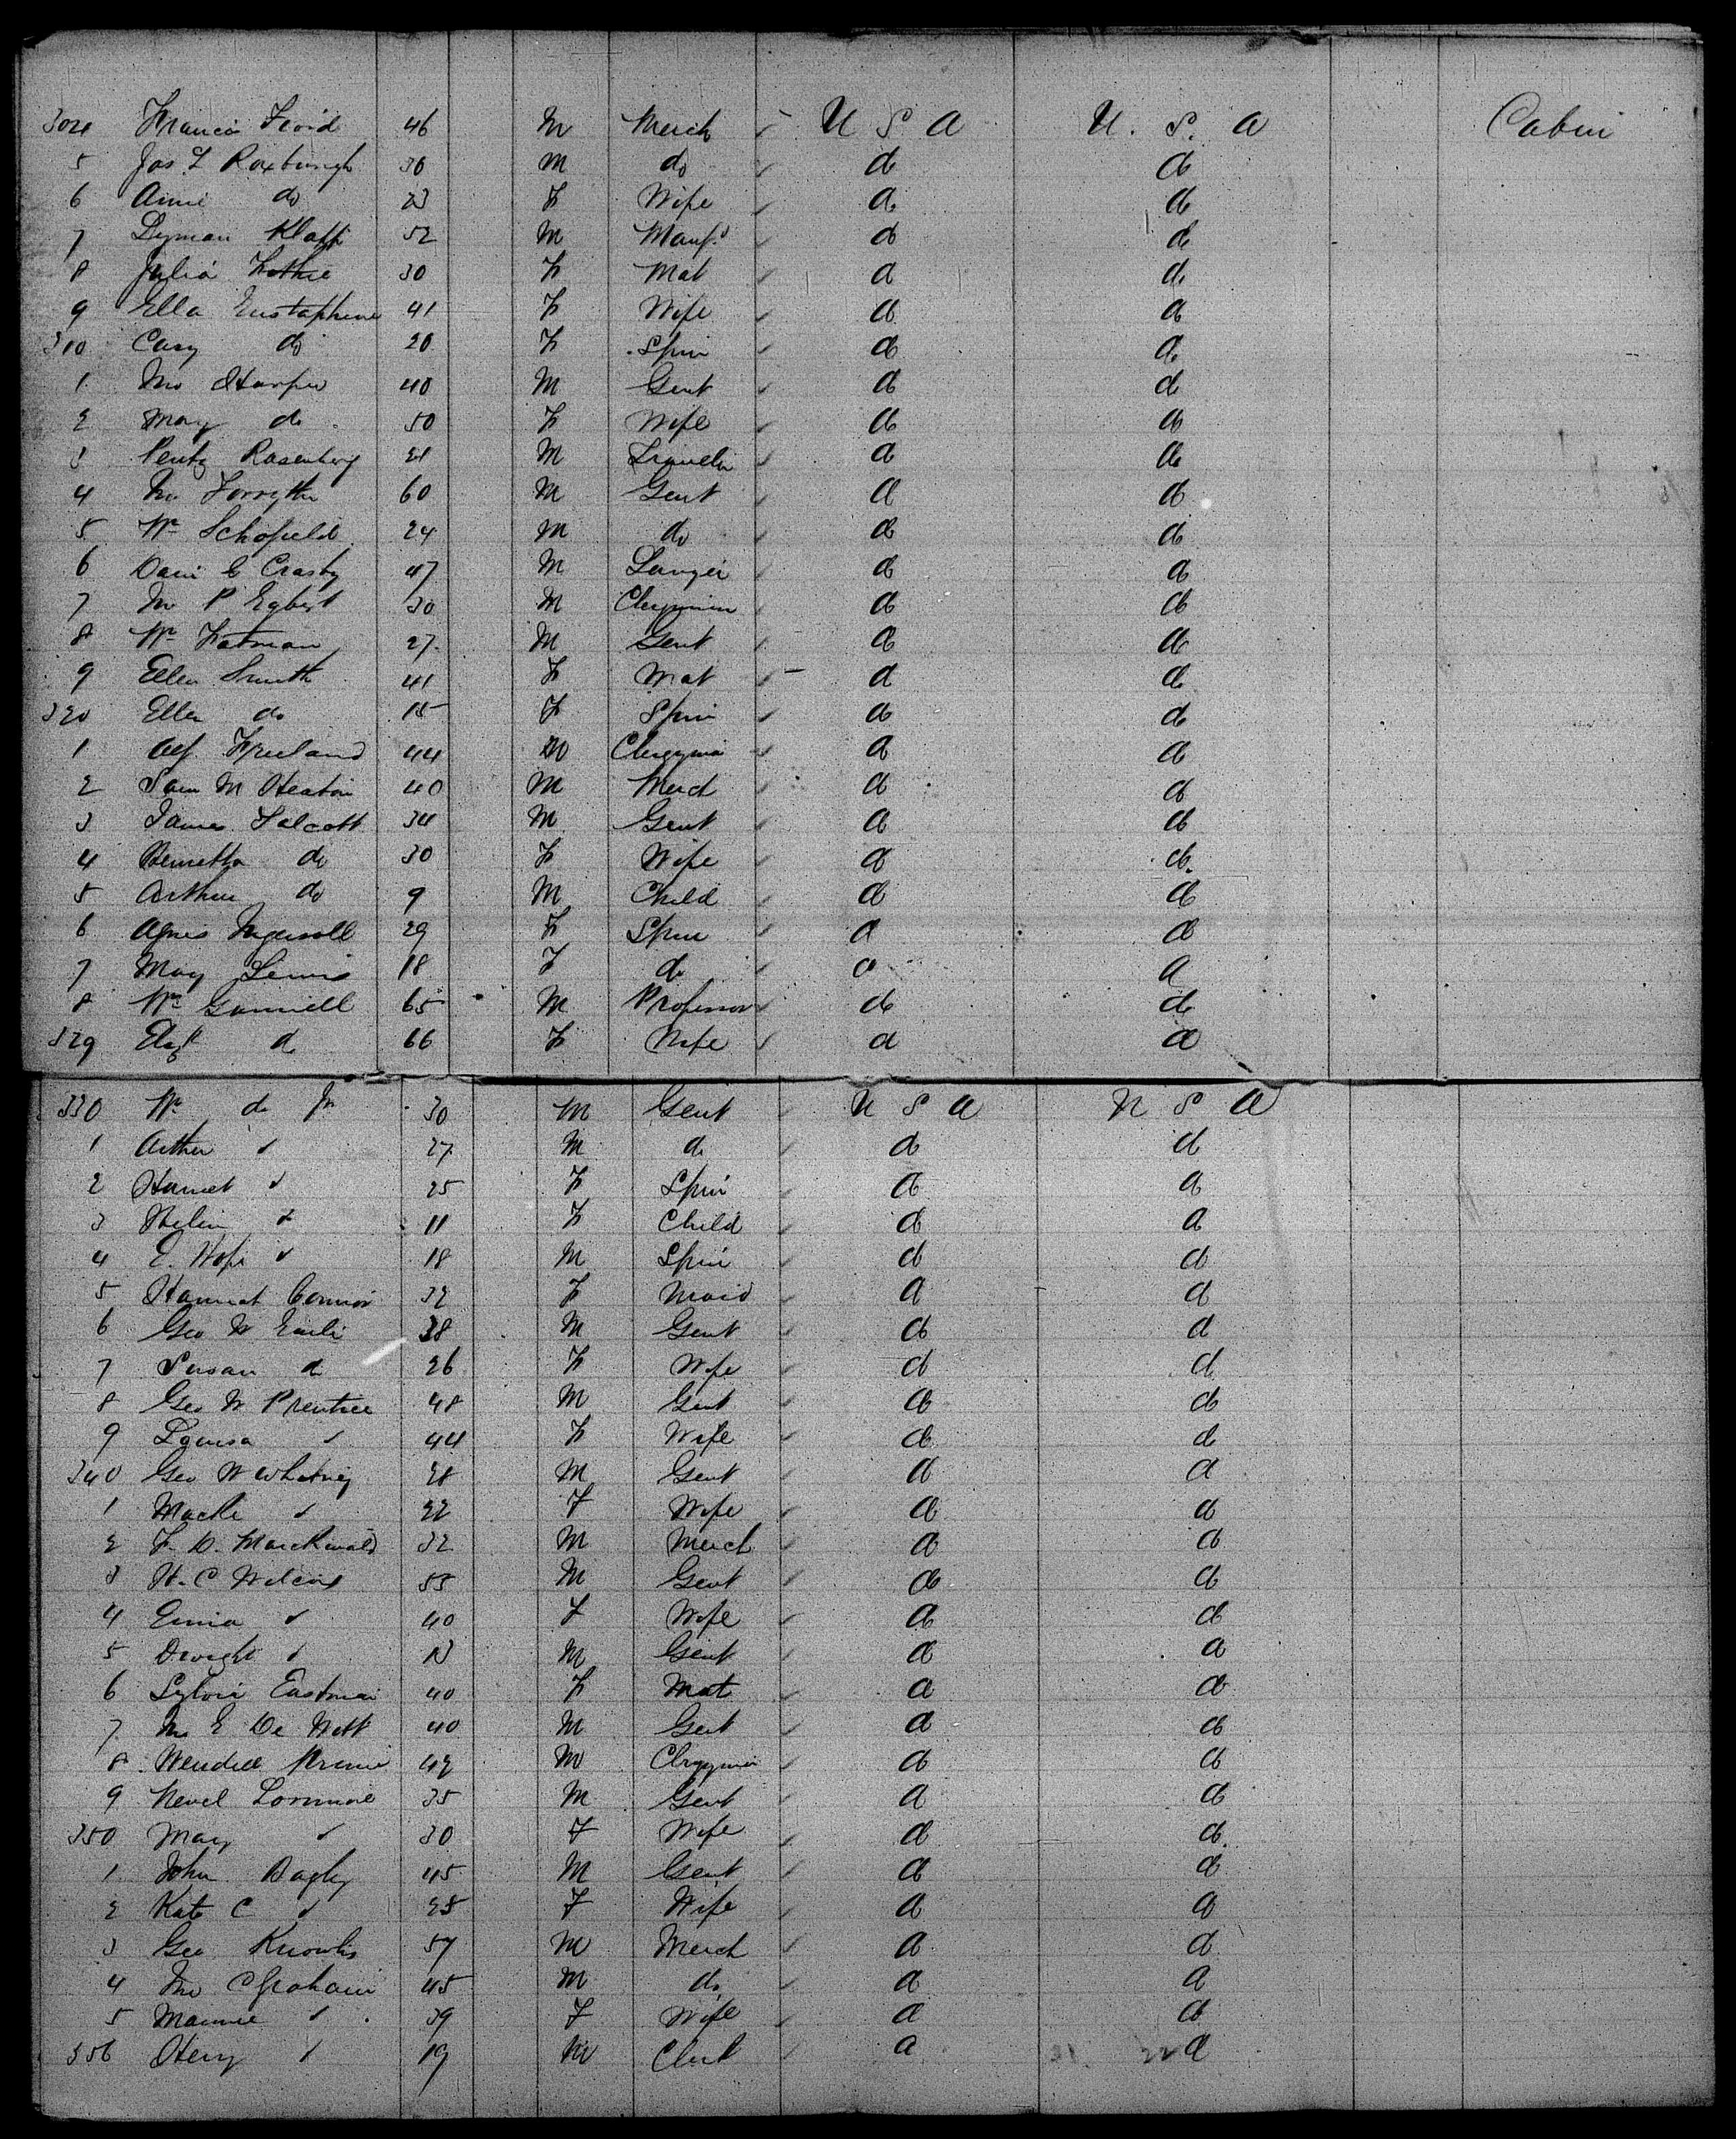 304 Francis 46 M Merch U S A U. S. A Cabin
5 Jas L Roxburgh 30 M do do do
6 Annie do 23 F Wife do do
7 Lyman Klapp 52 M Manfr do do
8 Julia 30 F Mat do do
9 Ella Eustaphieve 41 F Wife do do
310 Cary do 20 F Spin do do
1 Jno Harper 40 M Gent do do
2 Mary do 50 F Wife do do
3 Pentz Rosenberg 21 M do do
4 Jno Forsythe 60 M Gent do do
5 Wm Schofield 24 M do do do
6 Danl C Crosby 47 M Lawyer do do
7 Jno P Egbert 30 M Clergyman do do
8 Wm Fatman 27 M Gent do do
9 Ellen Smith 41 F Mat do do
320 Ellen do 15 F Spin do do
1 Alf. Freeland 44 M Clergyman do do
2 Sam M Heaton 40 M Merch do do
3 James Talcott 34 M Gent do do
4 Henrietta do 30 F Wife do do
5 Arthur do 9 M Child do do
6 Agnes Ingersoll 29 F Spin do do
7 May Lewis 18 F do do do
8 Wm Gammell 65 M Professor do do
329 Elizh do 66 F Wife do do
330 Wm do Jr 30 M Gent U S A U S A
1 Arthur do 27 M do do do
2 Harriet do 25 F Spin do do
3 Helen do 11 F Child do do
4 E. Hope do 18 M Spin do do
5 Hannah Connor 32 F Maid do do
6 Geo W 38 M Gent do do
7 Susan do 26 F Wife do do
8 Geo W Prentice 48 M Gent do do
9 Louisa do 44 F Wife do do
340 Geo W Whitney 28 M Gent do do
1 do 22 F Wife do do
2 F. D. Marckwald 32 M Merch do do
3 H. C Wilcox 55 M Gent do do
4 do 40 F Wife do do
5 Dwight do 13 M Gent do do
6 Sylvia Eastman 40 F Mat do do
7 Jno E De Witt 40 M Gent do do
8 Wendell Prime 42 M Clergyman do do
9 35 M Gent do do
350 Mary do 30 F Wife do do
1 John Bagley 45 M Gent do do
2 Kate C do 25 F Wife do do
3 Geo Knowles 57 M Merch do do
4 Jno C Graham 45 M do do do
5 Mannie do 39 F Wife do do
356 Henry do 19 M Clerk do do